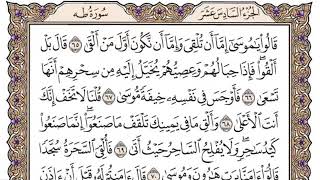 الجزء السادس عشر سورة طه
قَالُواْ يَٰمُوسَىٰٓ إِمَّآ أَن تُلۡقِيَ وَإِمَّآ أَن نَّكُونَ أَوَّلَ مَنۡ أَلۡقَىٰ ٦٥ قَالَ بَلۡ
أَلۡقُواْۖ فَإِذَا حِبَالُهُمۡ وَعِصِيُّهُمۡ يُخَيَّلُ إِلَيۡهِ مِن سِحۡرِهِمۡ أَنَّهَا
تَسۡعَىٰ ٦٦ فَأَوۡجَسَ فِي نَفۡسِهِۦ خِيفَةٗ مُّوسَىٰ ٦٧ قُلۡنَا لَا تَخَفۡ إِنَّكَ
أَنتَ ٱلۡأَعۡلَىٰ ٦٨ وَأَلۡقِ مَا فِي يَمِينِكَ تَلۡقَفۡ مَا صَنَعُوٓاْۖ إِنَّمَا صَنَعُواْ
كَيۡدُ سَٰحِرٖۖ وَلَا يُفۡلِحُ ٱلسَّاحِرُ حَيۡثُ أَتَىٰ ٦٩ فَأُلۡقِيَ ٱلسَّحَرَةُ سُجَّدٗا
قَالُوٓاْ ءَامَنَّا بِرَبِّ هَٰرُونَ وَمُوسَىٰ ٧٠ قَالَ ءَامَنتُمۡ لَهُۥ قَبۡلَ أَنۡ ءَاذَنَ